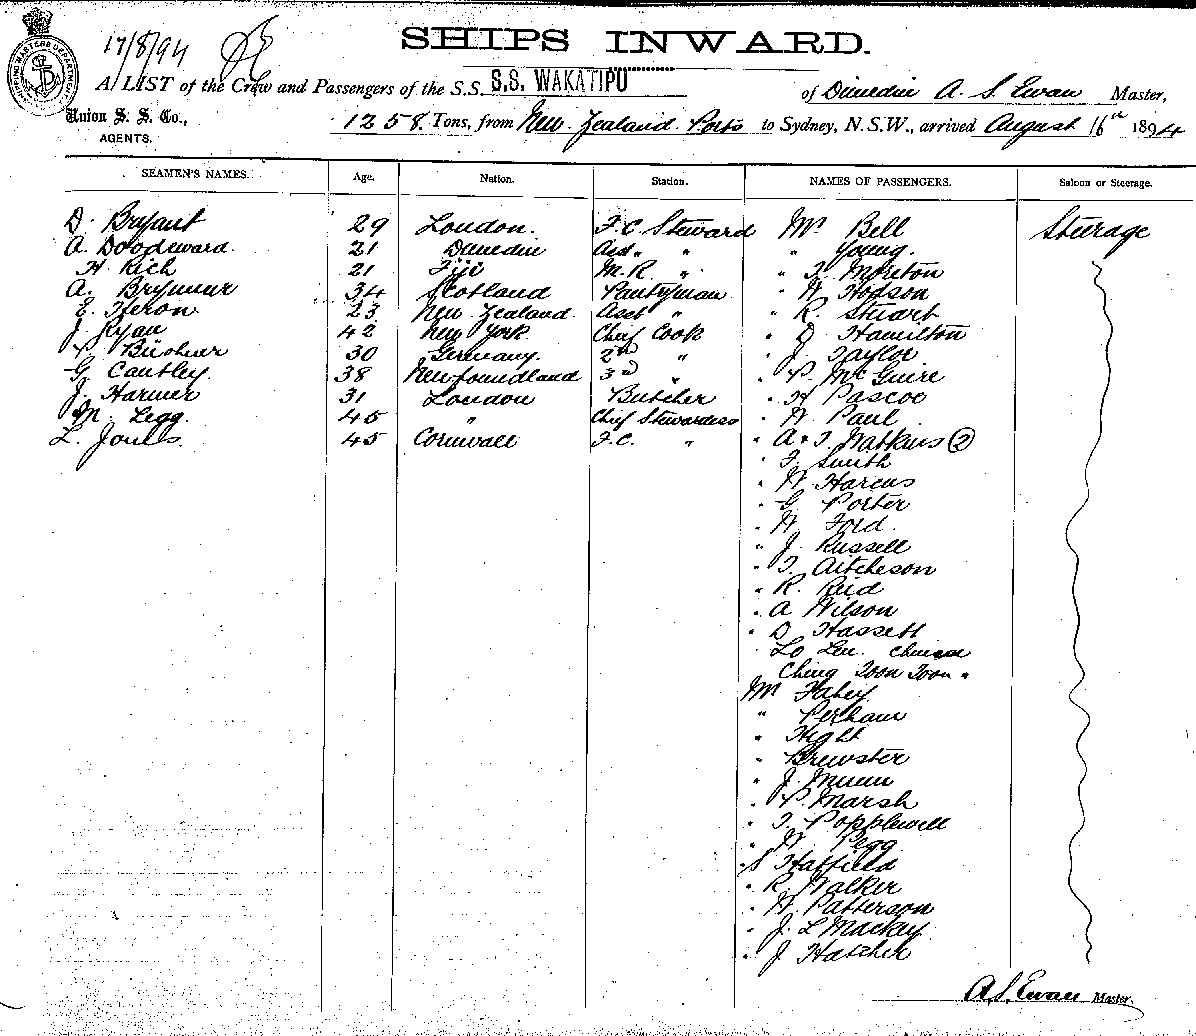 17/8/94
SHIPS INWARD.
SHIPPING MASTERS DEPARTMENT
A LIST of the Crew and Passengers of the S.S. S.S. WAKATIPU of Dunedin A. S. Ewan Master,
Union S. S. Co., AGENTS.
1258 Tons, from New Zealand Ports to Sydney, N.S.W., arrived August 16th 1894
SEAMEN'S NAMES. Age. Nation. Station. NAMES OF PASSENGERS. Saloon or Steerage.
D. Bryant 29 London. F.C. Steward Mr Bell Steerage
A. Doodeward. 21 Dunedin Asst. " " Young.
H. Rich 21 Fiji M.R. " " T. Moreton
A. Brymner 34 Scotland Pantryman " W Hodson
E. Heron 23 New Zealand. Asst " " R. Stuart
J. Ryan 42 New York Chief Cook " J Hamilton
Büchner 30 Germany. 2nd " " J. Taylor
G. Cantley. 38 Newfoundland 3rd " " P. McGuire
J. Harmer 31 London Butcher " H Pascoe
M. Legg. 45 " Chief Stewardess " W. Paul
L. Joules 45 Cornwall F.C. " " A & T. Watkins (2)
" T. Smith
" W. Harcus
" G. Porter
" W Ford.
" J. Russell
" T. Aitcheson
" R. Reid
" A Wilson
" D. Hassett
Lo Len. Chinese
Ching Toon Toon "
Mr Fahey
" Perham
" Hight
" Brewster
" J. Munn
" P. Marsh
" T. Popplewell
" W Pegg
" S Hatfield
" R. Walker
" W. Patterson
" J. L Mackay
" J Hatcher
A.S. Ewan Master.